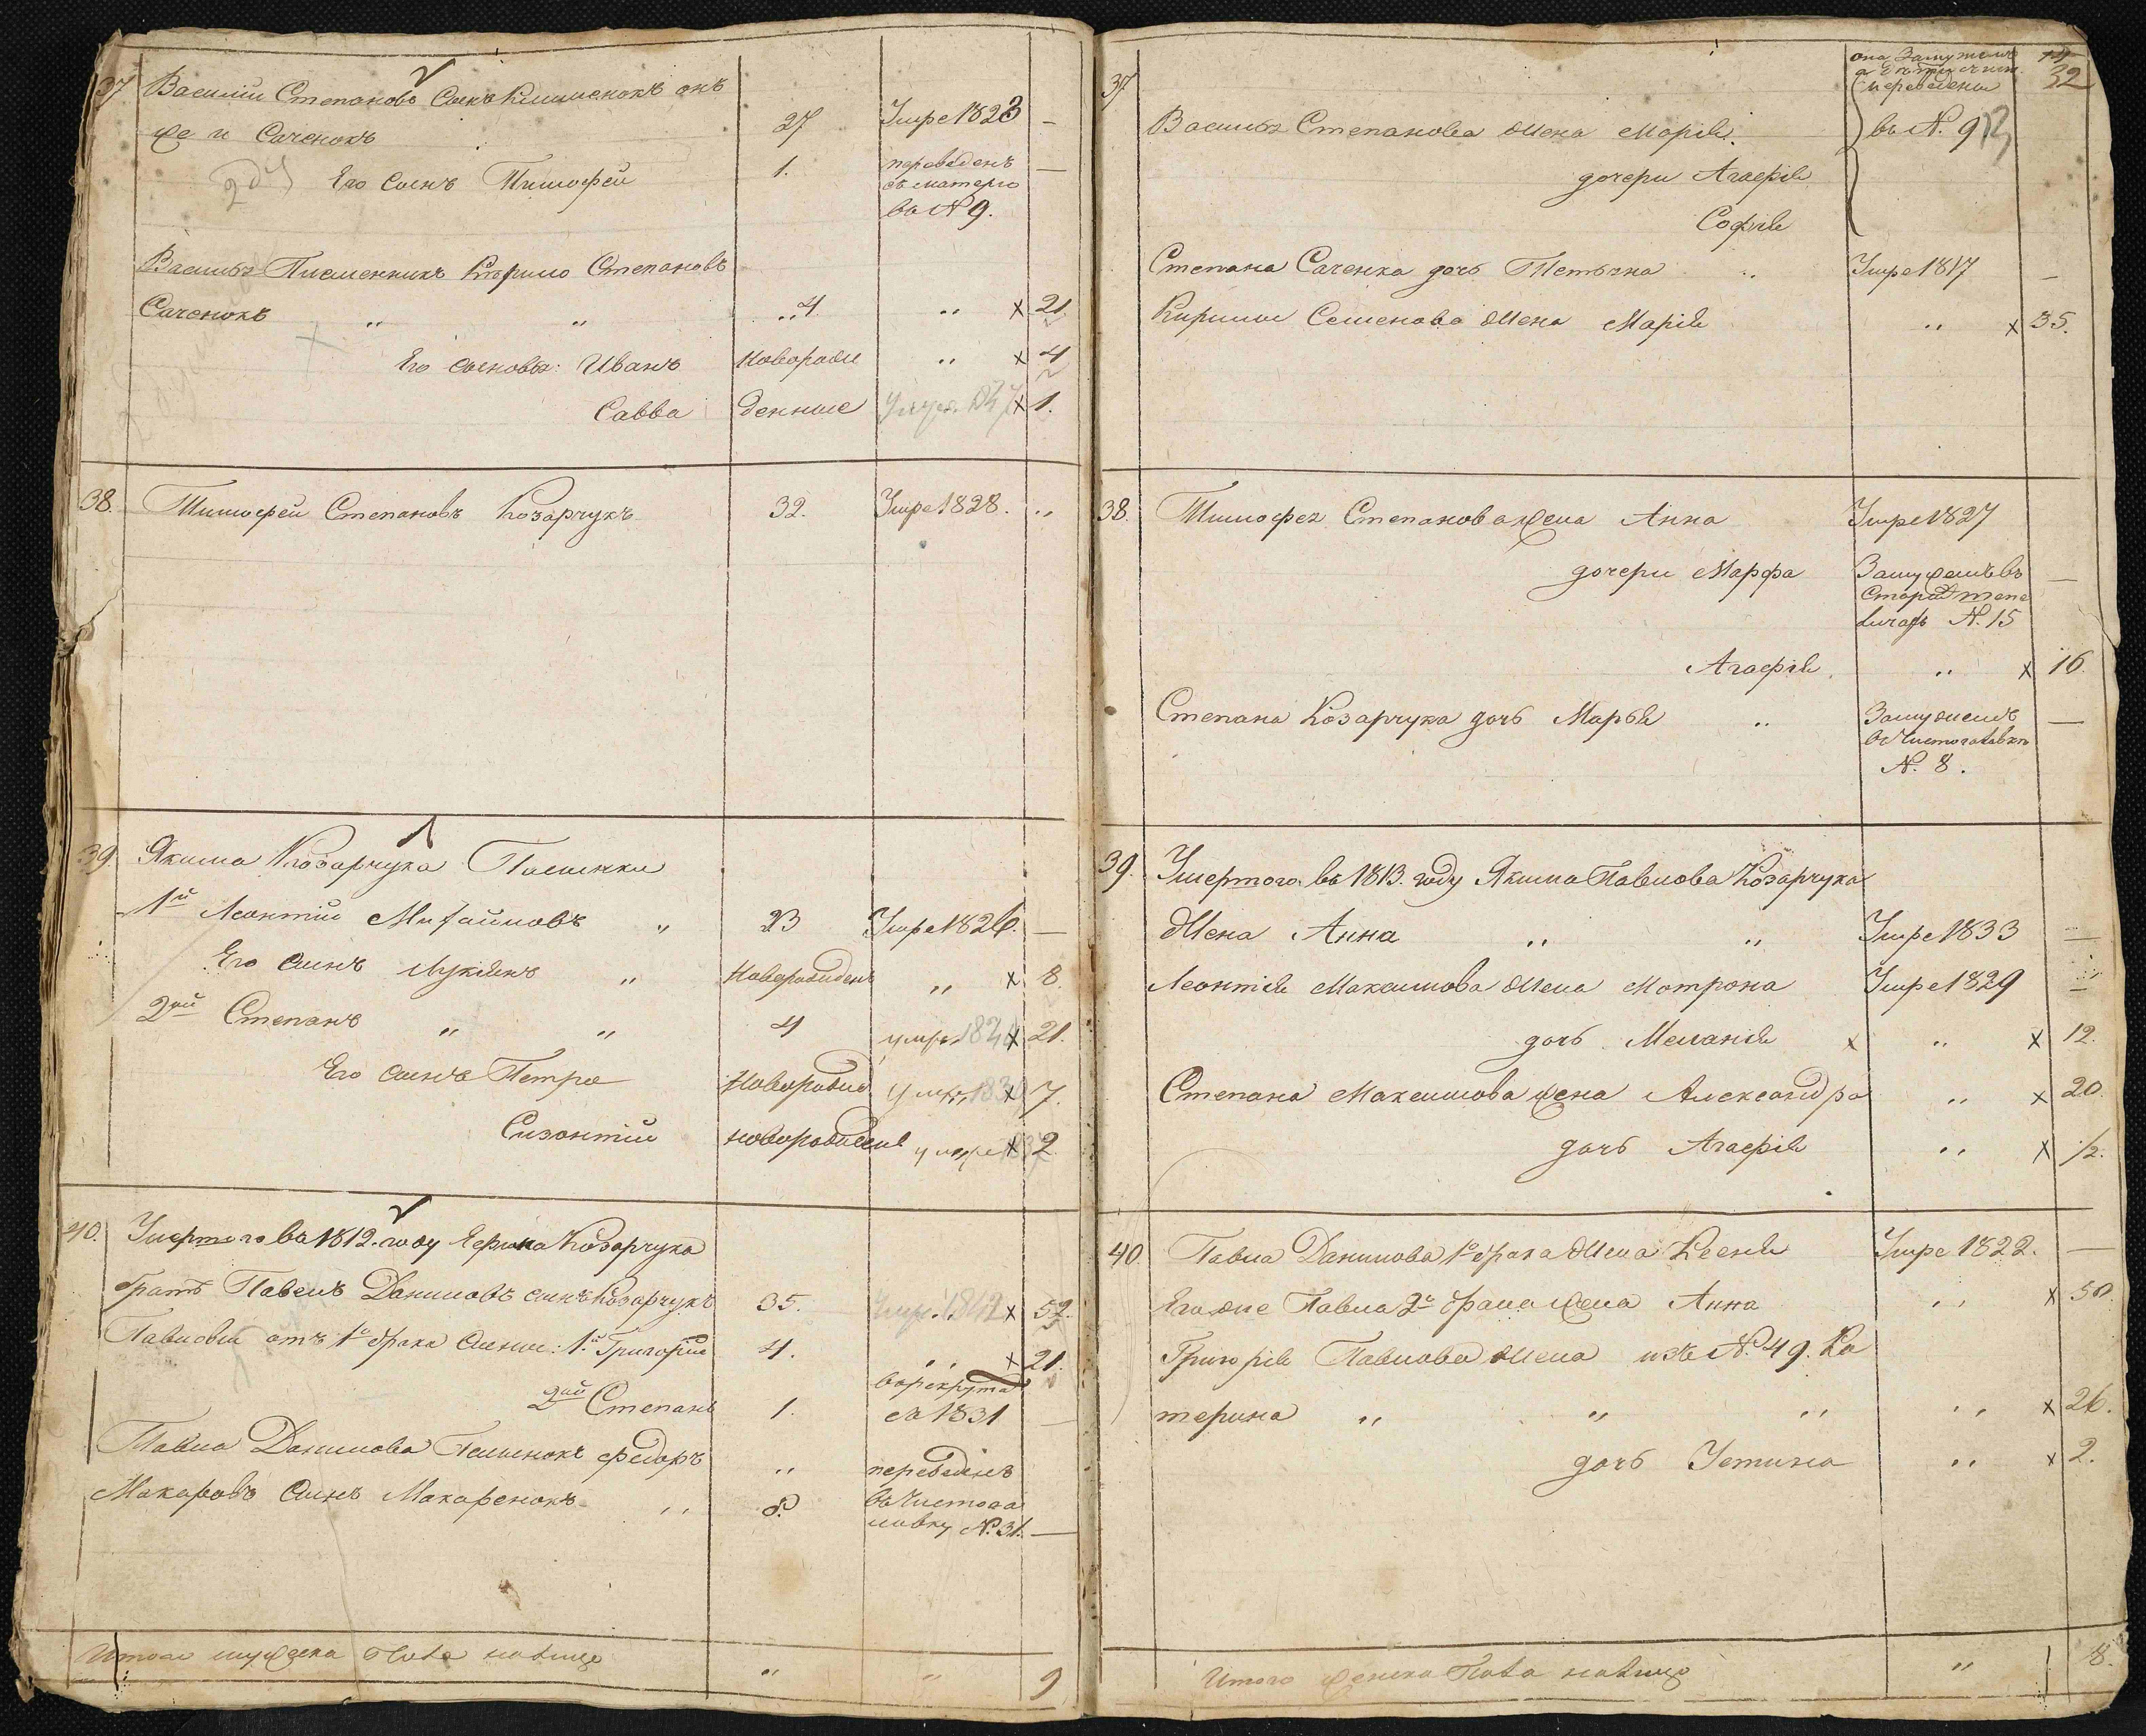 37
Василій Степановъ Сынъ Климиенокъ онъ
же и Саченокъ
27
Умре 1823
—
Его сынъ Тимофей
1.
переведенъ
съ матерью
въ № 9.
—
Василья Племенникъ Кирило Степановъ
Саченокъ " "
4
"
х 21.
Его сыновья: Иванъ
новорож
"
х 4
Савва
денные
х 1.
38.
Тимофей Степановъ Козарчукъ
32.
Умре 1828.
"
39.
Якима Козарчука Пасынки
1й Леонтій Михайловъ "
23
Умре 1826.
—
Его сынъ Лукіянъ "
Новорожденъ
"
х 8.
2ой Степанъ " "
4
умре
х 21.
Его сынъ Петро
Новорожд
умре
х 7.
Сизонтій
новорожден
умре
х 2
40.
Умертого въ 1812. году Козарчука
братъ Павелъ Даниловъ сынъ Козарчукъ
35.
Умр. 1842
х 52.
Павловы отъ 1о брака сыны: 1й Григорій
4.
"
х 21.
2ой Степанъ
1.
въ рекрута
съ 1831
—
Павла Данилова Пасынокъ Федоръ
"
переведенъ
Макаровъ сынъ Макаренокъ "
8.
въ Чистога
ловку №. 31.
—
Итого мужеска пола налицо
"
"
9
37
она Замужемъ
переведены
въ №. 9
32
Василья Степанова жена Марія.
дочери Агафія
Софія
Степана Саченка дочь Тетьяна "
Умре 1817
—
Кирилы Семенова жена Марія
"
х 35.
38.
Тимофея Степанова жена Анна
Умре 1827
дочери Марфа
Замужемъ въ
№. 15
—
Агафія
"
х 16
Степана Козарчука дочь Марья "
Замужемъ
въ Чистогаловкъ
№. 8.
—
39.
Умертого въ 1813. году Якима Павлова Козарчука
Жена Анна " "
Умре 1833
—
Леонтія Максимова жена Мотрона
Умре 1829
—
дочь Меланія х
"
х 12.
Степана Максимова жена Александра
"
х 20.
дочь Агафія
"
х 1/2.
40.
Павла Данилова 1о брака жена Ксенія
Умре 1822.
—
Его же Павла 2о брака жена Анна
"
х 50
Григорія Павлова жена изъ №. 49. Ка
терина " " "
"
х 26.
дочь Устина
"
х 2.
Итого женска пола налицо
"
8.